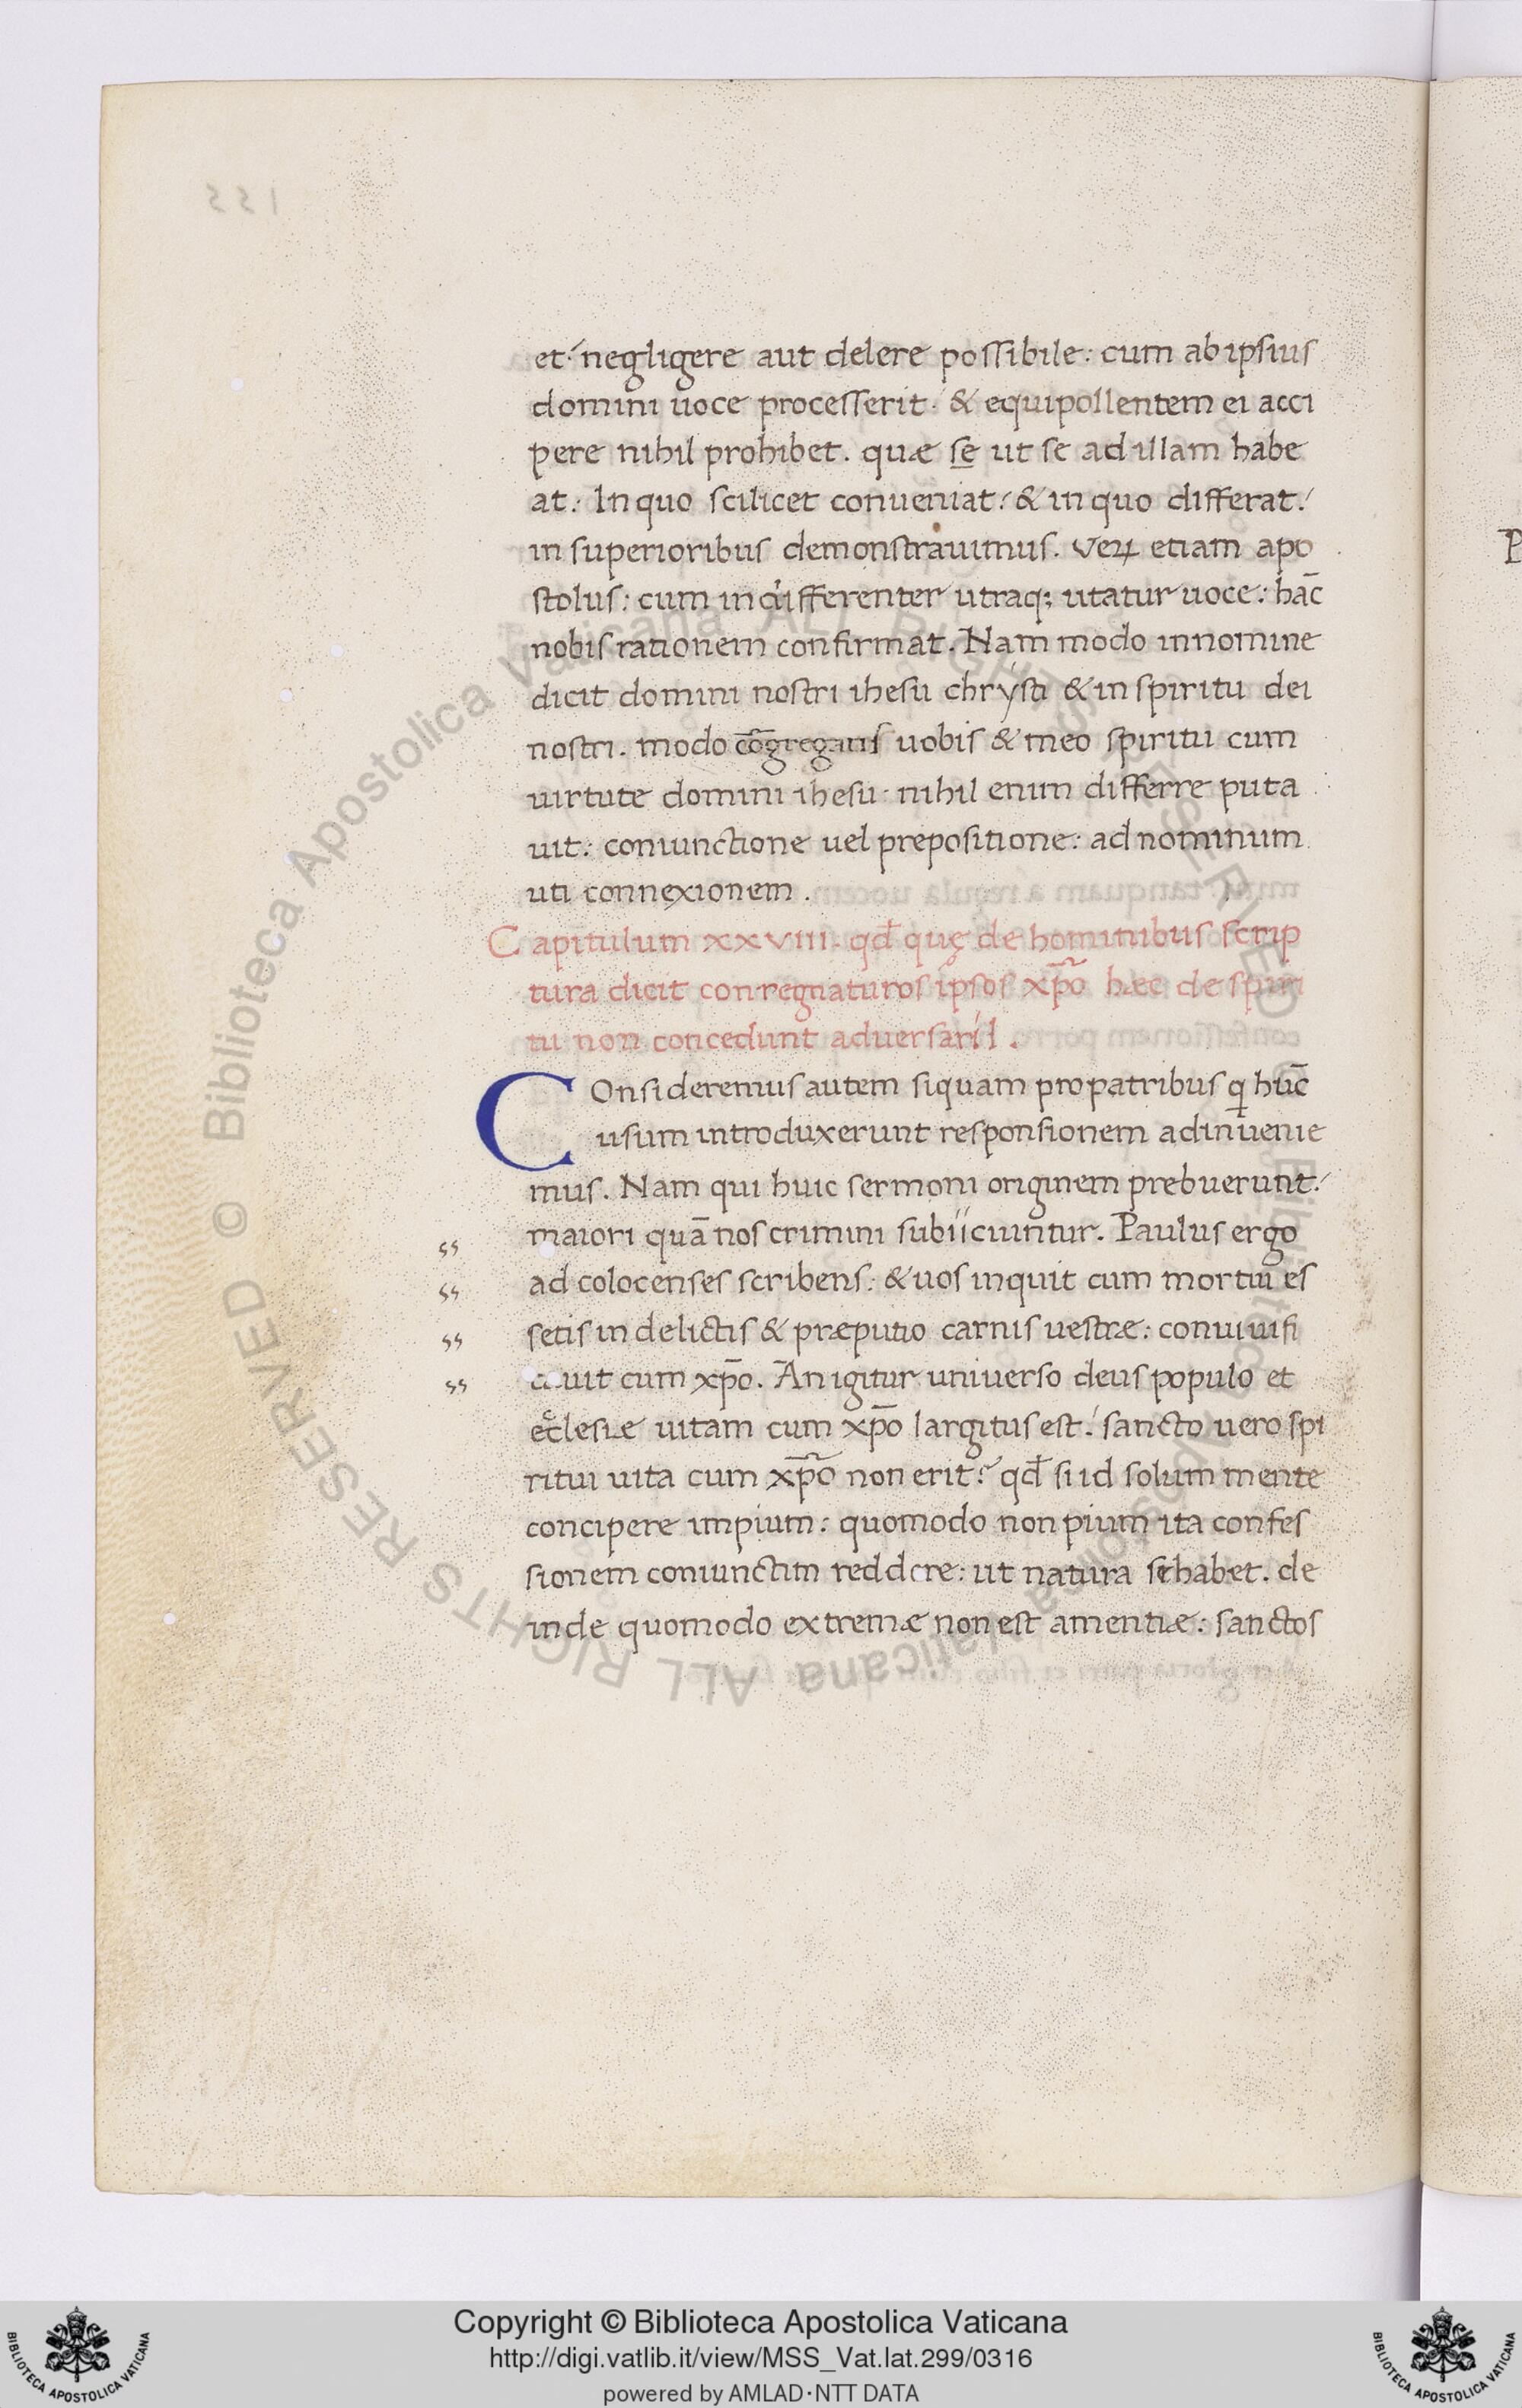 et: negligere aut delere possibile: cum ab ipsius
domini uoce processerit: & equipollentem ei acci
pere nihil prohibet. quæ se ut se ad illam habe
at: In quo scilicet conueniat: & in quo differat:
in superioribus demonstrauimus. Veꝝ etiam apo
stolus: cum indifferenter utraq; utatur uoce: hac̄
nobis rationem confirmat. Nam modo in nomine
dicit domini nostri ihesu chrysti & in spiritu dei
nostri. modo cōgregatis uobis & meo spiritu cum
uirtute domini ihesu: nihil enim differre puta
uit: coniunctione uel prepositione: ad nominum
uti connexionem.
Capitulum xxviii. qd̄ quę de hominibus scrip
tura dicit conregnaturos ipsos xp̄o hæc de spiri
tu non concedunt aduersarii.
COnsideremus autem siquam pro patribus q̄ huc̄
usum introduxerunt responsionem adinuenie
mus. Nam qui huic sermoni originem prebuerunt:
maiori quā nos crimini subiiciuntur. Paulus ergo
ad colocenses scribens: & uos inquit cum mortui es
setis in delictis & præputio carnis uestræ: conuiuifi
cauit cum xp̄o. An igitur uniuerso deus populo et
ecclesiæ uitam cum xp̄o largitus est: sancto uero spi
ritui uita cum xp̄o non erit? qd̄ si id solum mente
concipere impium: quomodo non pium ita confes
sionem coniunctim reddere: ut natura se habet. de
inde quomodo extremæ non est amentiæ: sanctos
Copyright © Biblioteca Apostolica Vaticana
http://digi.vatlib.it/view/MSS_Vat.lat.299/0316
powered by AMLAD·NTT DATA
BIBLIOTECA APOSTOLICA VATICANA
BIBLIOTECA APOSTOLICA VATICANA